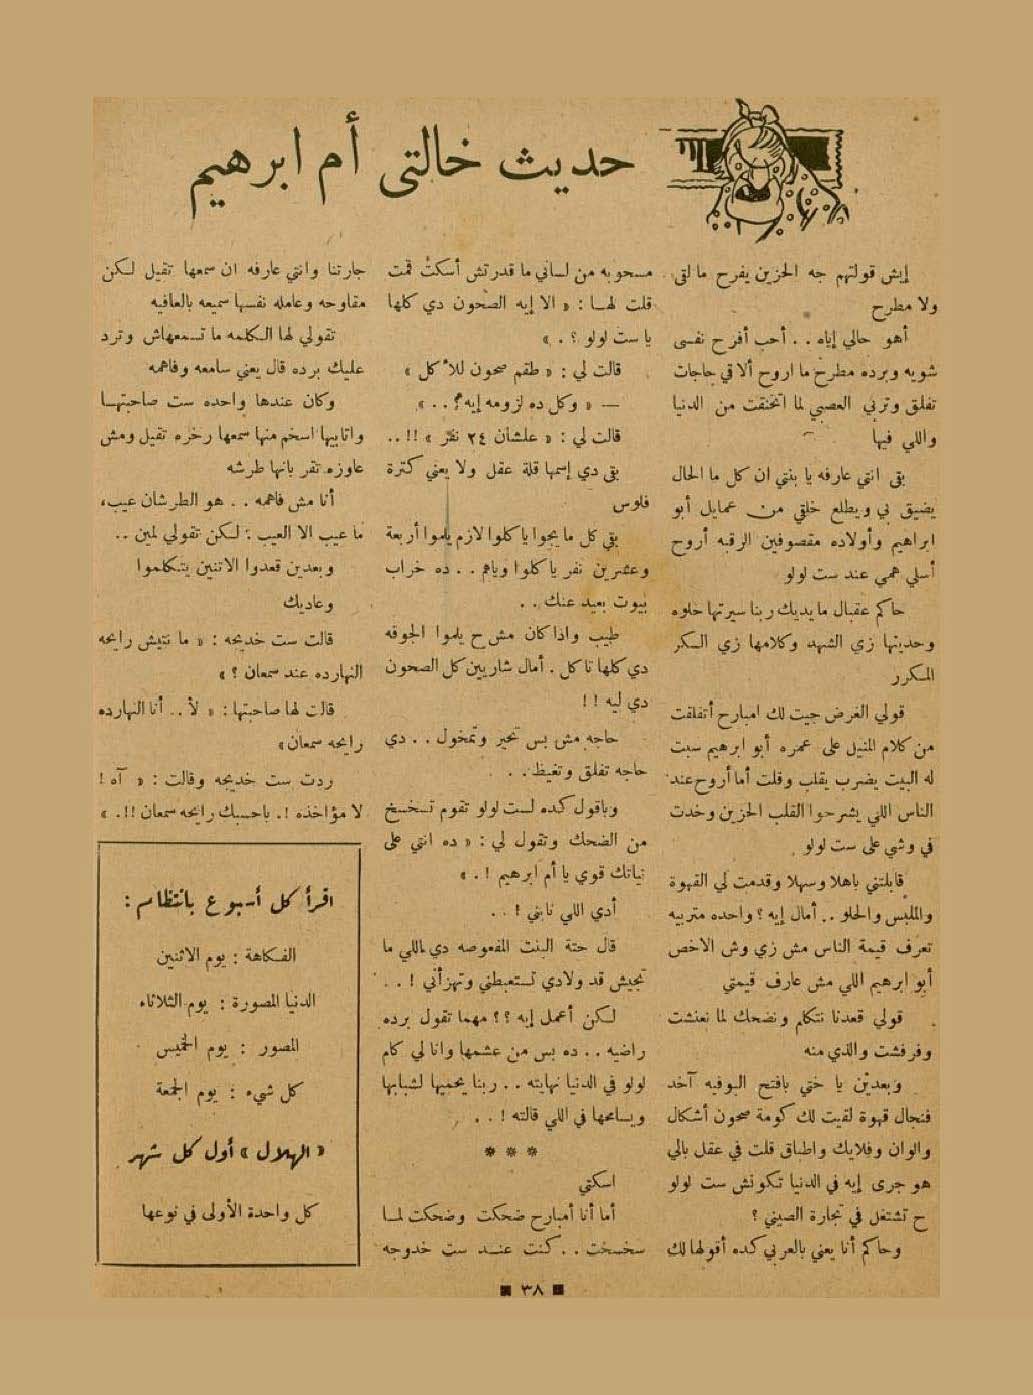 حديث خالتي أم ابرهيم
إيش قولتهم جه الحزين يفرح ما لقى
ولا مطرح
أهو حالي إياه . . أحب أفرح نفسى
شويه وبرده مطرح ما اروح ألاقي حاجات
تفلق وتربي العصبي لما اتخنقت من الدنيا
واللي فيها
بقى انتي عارفه يا بنتي ان كل ما الحال
يضيق بي ويطلع خلقي من عمايل أبو
ابراهيم وأولاده مقصوفين الرقبه أروح
أسلي همي عند ست لولو
حاكم عقبال ما يديك ربنا سيرتها حلوه
وحديثها زي الشهد وكلامها زي السكر
المكرر
قولي الغرض جيت لك امبارح أتفلقت
من كلام المنيل على عمره أبو ابرهيم سبت
له البيت يضرب يقلب وقلت أما أروح عند
الناس اللي يشرحوا القلب الحزين وخدت
في وشي على ست لولو
قابلتني باهلا وسهلا وقدمت لي القهوة
والملبس والحلو . . أمال إيه ؟ واحده متربيه
تعرف قيمة الناس مش زي وش الاخص
أبو ابرهيم اللي مش عارف قيمتي
قولي قعدنا نتكلم ونضحك لما نعنشت
وفرفشت والذي منه
وبعدين يا ختي بافتح البوفيه آخد
فنجال قهوة لقيت لك كومة صحون أشكال
والوان وفلايك واطباق قلت في عقل بالي
هو جرى إيه في الدنيا تكونش ست لولو
ح تشتغل في تجارة الصيني ؟
وحاكم أنا يعني بالعربي كده أقولها لك
مسحوبه من لساني ما قدرتش أسكت قمت
قلت لهـا : « الا إيه الصحون دي كلها
يا ست لولو ؟ . »
قالت لي : « طقم صحون للأكل »
— « وكل ده لزومه إيه ؟ . . »
قالت لي : « علشان ٢٤ نفر » !! . .
بقى دي إسمها قلة عقل ولا يعني كترة
فلوس
بقى كل ما يجوا ياكلوا لازم يلموا أربعة
وعشرين نفر ياكلوا وياهم . . ده خراب
بيوت بعيد عنك . .
طيب واذا كان مش ح يلموا الجوقه
دي كلها تاكل . أمال شاريين كل الصحون
دي ليه !!
حاجه مش بس تحير وتمخول . . دي
حاجه تفلق وتغيظ . . .
وباقول كده لست لولو تقوم تسخسخ
من الضحك وتقول لي : « ده انتي على
نياتك قوي يا أم ابرهيم ! . »
أدي اللي نابني ! . .
قال حتة البنت المفعوصه دي اللي ما
تجيش قد ولادي تستعبطني وتهزأني ! . .
لكن أعمل إيه ؟؟ مهما تقول برده
راضيه . . ده بس من عشمها وانا لي كام
لولو في الدنيا نهايته . . ربنا يحميها لشبابها
ويسامحها في اللي قالته ! . .
* * *
اسكتي
أما أنا أمبارح ضحكت وضحكت لمـا
سخسخت . . كنت عنـد ست خدوجه
جارتنا وانتي عارفه ان سمعها تقيل لكن
مقاوحه وعامله نفسها سميعه بالعافيه
تقولي لها الكلمه ما تسمعهاش وترد
عليك برده قال يعني سامعه وفاهمه
وكان عندها واحده ست صاحبتهـا
واتابيها اسخم منها سمعها رخره تقيل ومش
عاوزه تقر بانها طرشه
أنا مش فاهمه . . هو الطرشان عيب،
ما عيب الا العيب ؛ لكن تقولي لمين . .
وبعدين قعدوا الاتنين يتكلموا
وعاديك
قالت ست خديجه : « ما نتيش رايحه
النهارده عند سمعان ؟ »
قالت لها صاحبتها : « لأ . . أنا النهارده
رايحه سمعان »
ردت ست خديجه وقالت : « آه !
لا مؤاخذه ! . باحسبك رايحه سمعان !! . »
اقرأ كل أسبوع بانتظام :
الفكاهة : يوم الاثنين
الدنيا المصورة : يوم الثلاثاء
المصور : يوم الخميس
كل شيء : يوم الجمعة
« الهلال » أول كل شهر
كل واحدة الأولى في نوعها
٣٨